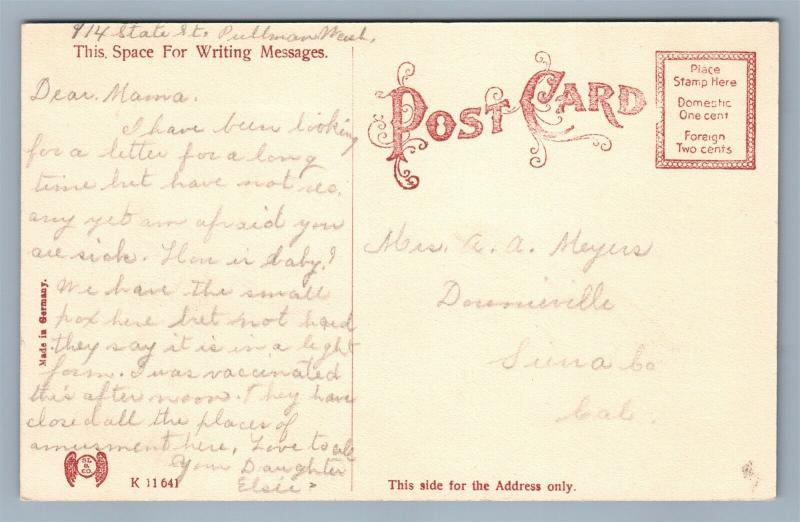 914 State St. Pullman Wash.
This Space For Writing Messages.
Dear Mama.
I have been looking
for a letter for a long
time but have not rec.
any yet am afraid you
are sick. How is baby?
We have the small
pox here but not hard
they say it is in a light
form. I was vaccinated
this after noon. They have
closed all the places of
amusment here, Love to all
Your Daughter
Elsie
Made in Germany.
SL
&
CO.
K 11641
POST CARD
Place
Stamp Here
Domestic
One cent
Foreign
Two cents
Mrs. A. A. Meyers
Downieville
Sierra Co
Cal.
This side for the Address only.